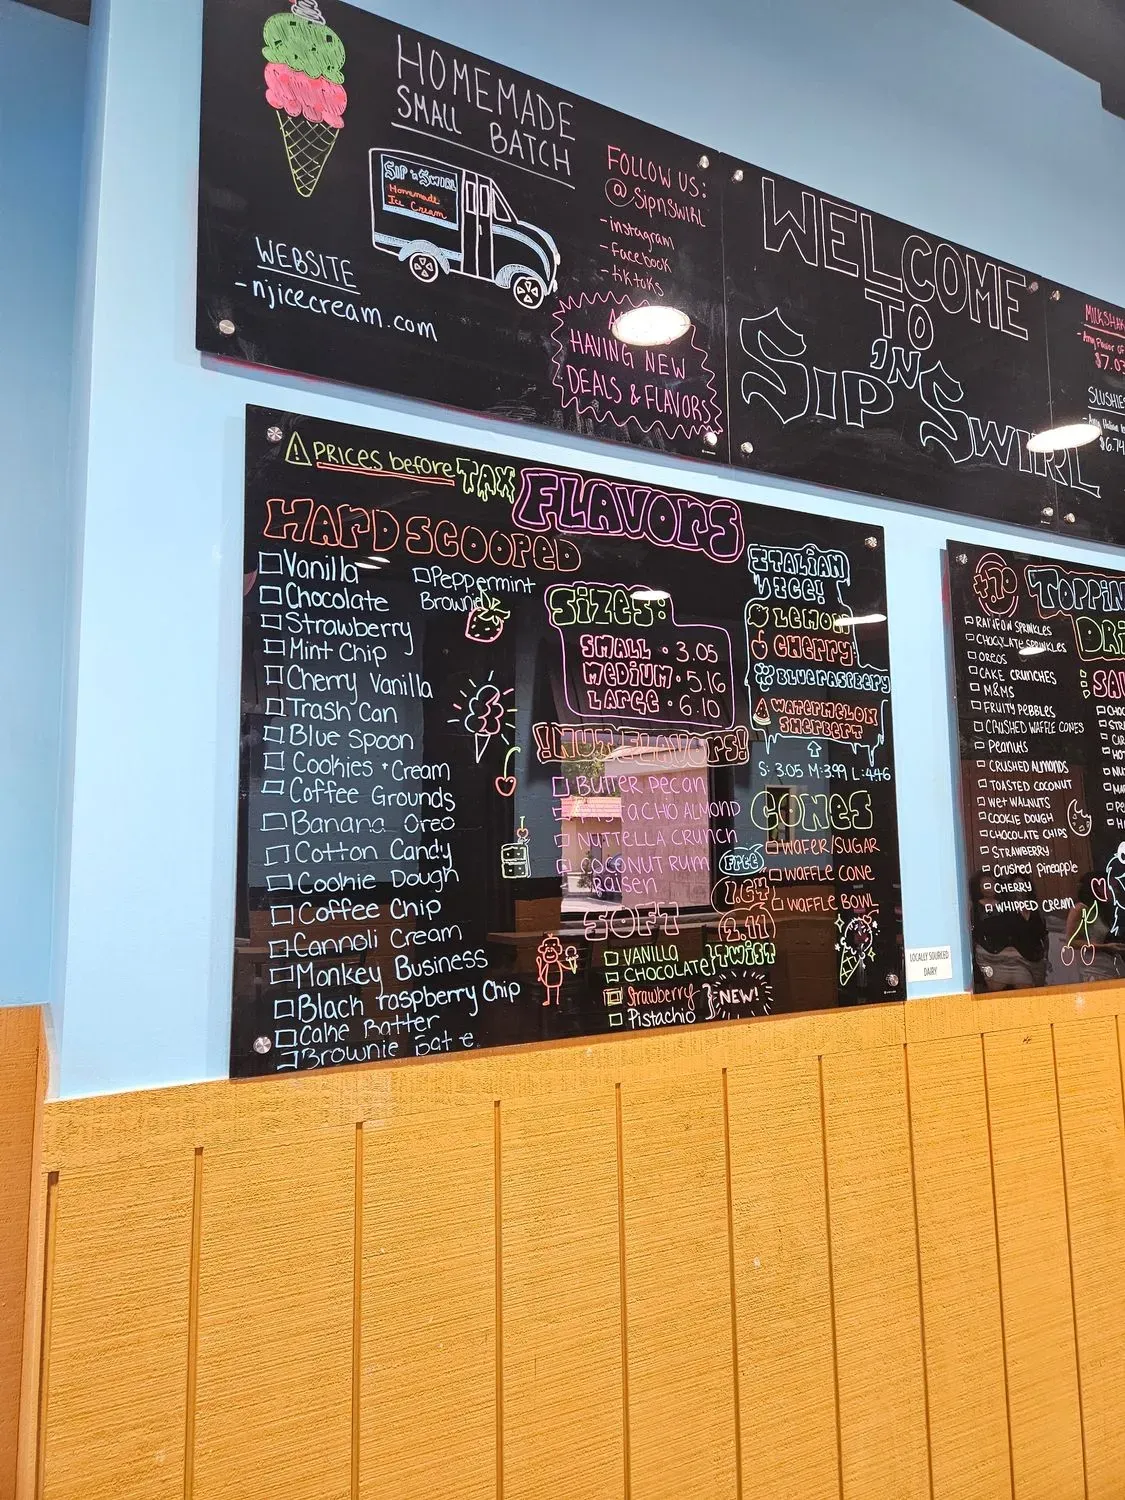 HOMEMADE
SMALL BATCH
SIP 'n SWIRL
Homemade
Ice Cream
WEBSITE
- njicecream.com
FOLLOW US:
@SipnSwirl
- instagram
- facebook
- tiktoks
HAVING NEW
DEALS & FLAVORS
WELCOME
TO
SIP 'N SWIRL
MILKSHAK
- Any Flavor of
$7.03
SLUSHIE
$6.74
PRICES before TAX
FLAVORS
HARD SCOOPED
Vanilla
Chocolate
Strawberry
Mint Chip
Cherry Vanilla
Trash Can
Blue Spoon
Cookies + Cream
Coffee Grounds
Banana Oreo
Cotton Candy
Cookie Dough
Coffee Chip
Cannoli Cream
Monkey Business
Black raspberry Chip
Cake Batter
Brownie
Peppermint
Brownie
SIZES:
SMALL • 3.05
MEDIUM • 5.16
LARGE • 6.10
!NUT FLAVORS!
Butter Pecan
ACHO ALMOND
NUTTELLA CRUNCH
COCONUT RUM
Raisen
SOFT
VANILLA
CHOCOLATE
TWIST
Strawberry
Pistachio
NEW!
ITALIAN
ICE!
LEMON
CHERRY
BLUERASPBERRY
WATERMELON
SHERBERT
S: 3.05 M: 3.99 L: 4.46
CONES
FREE
WAFER/SUGAR
1.64
WAFFLE CONE
2.11
WAFFLE BOWL
LOCALLY SOURCED
DAIRY
+.70
TOPPIN
DRI
RAINBOW SPRINKLES
CHOCOLATE SPRINKLES
OREOS
CAKE CRUNCHES
M&MS
FRUITY PEBBLES
CRUSHED WAFFLE CONES
PEANUTS
CRUSHED ALMONDS
TOASTED COCONUT
WET WALNUTS
COOKIE DOUGH
CHOCOLATE CHIPS
STRAWBERRY
Crushed Pineapple
CHERRY
WHIPPED CREAM
SAU
CHO
STR
CAR
HOT
NU
MAR
PE
H